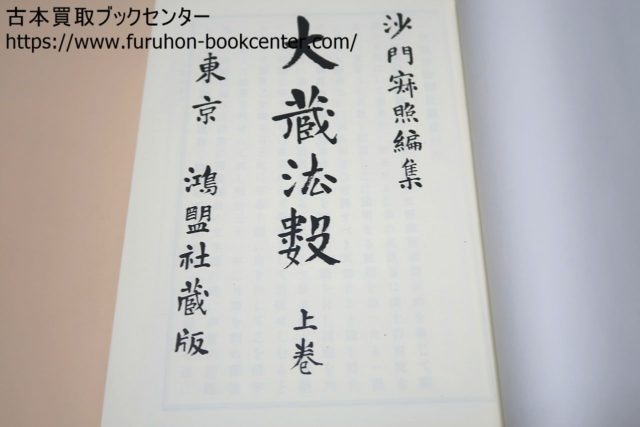 古本買取ブックセンター
https://www.furuhon-bookcenter.com/
沙門寂照編集
大蔵法数 上巻
東京 鴻盟社蔵版